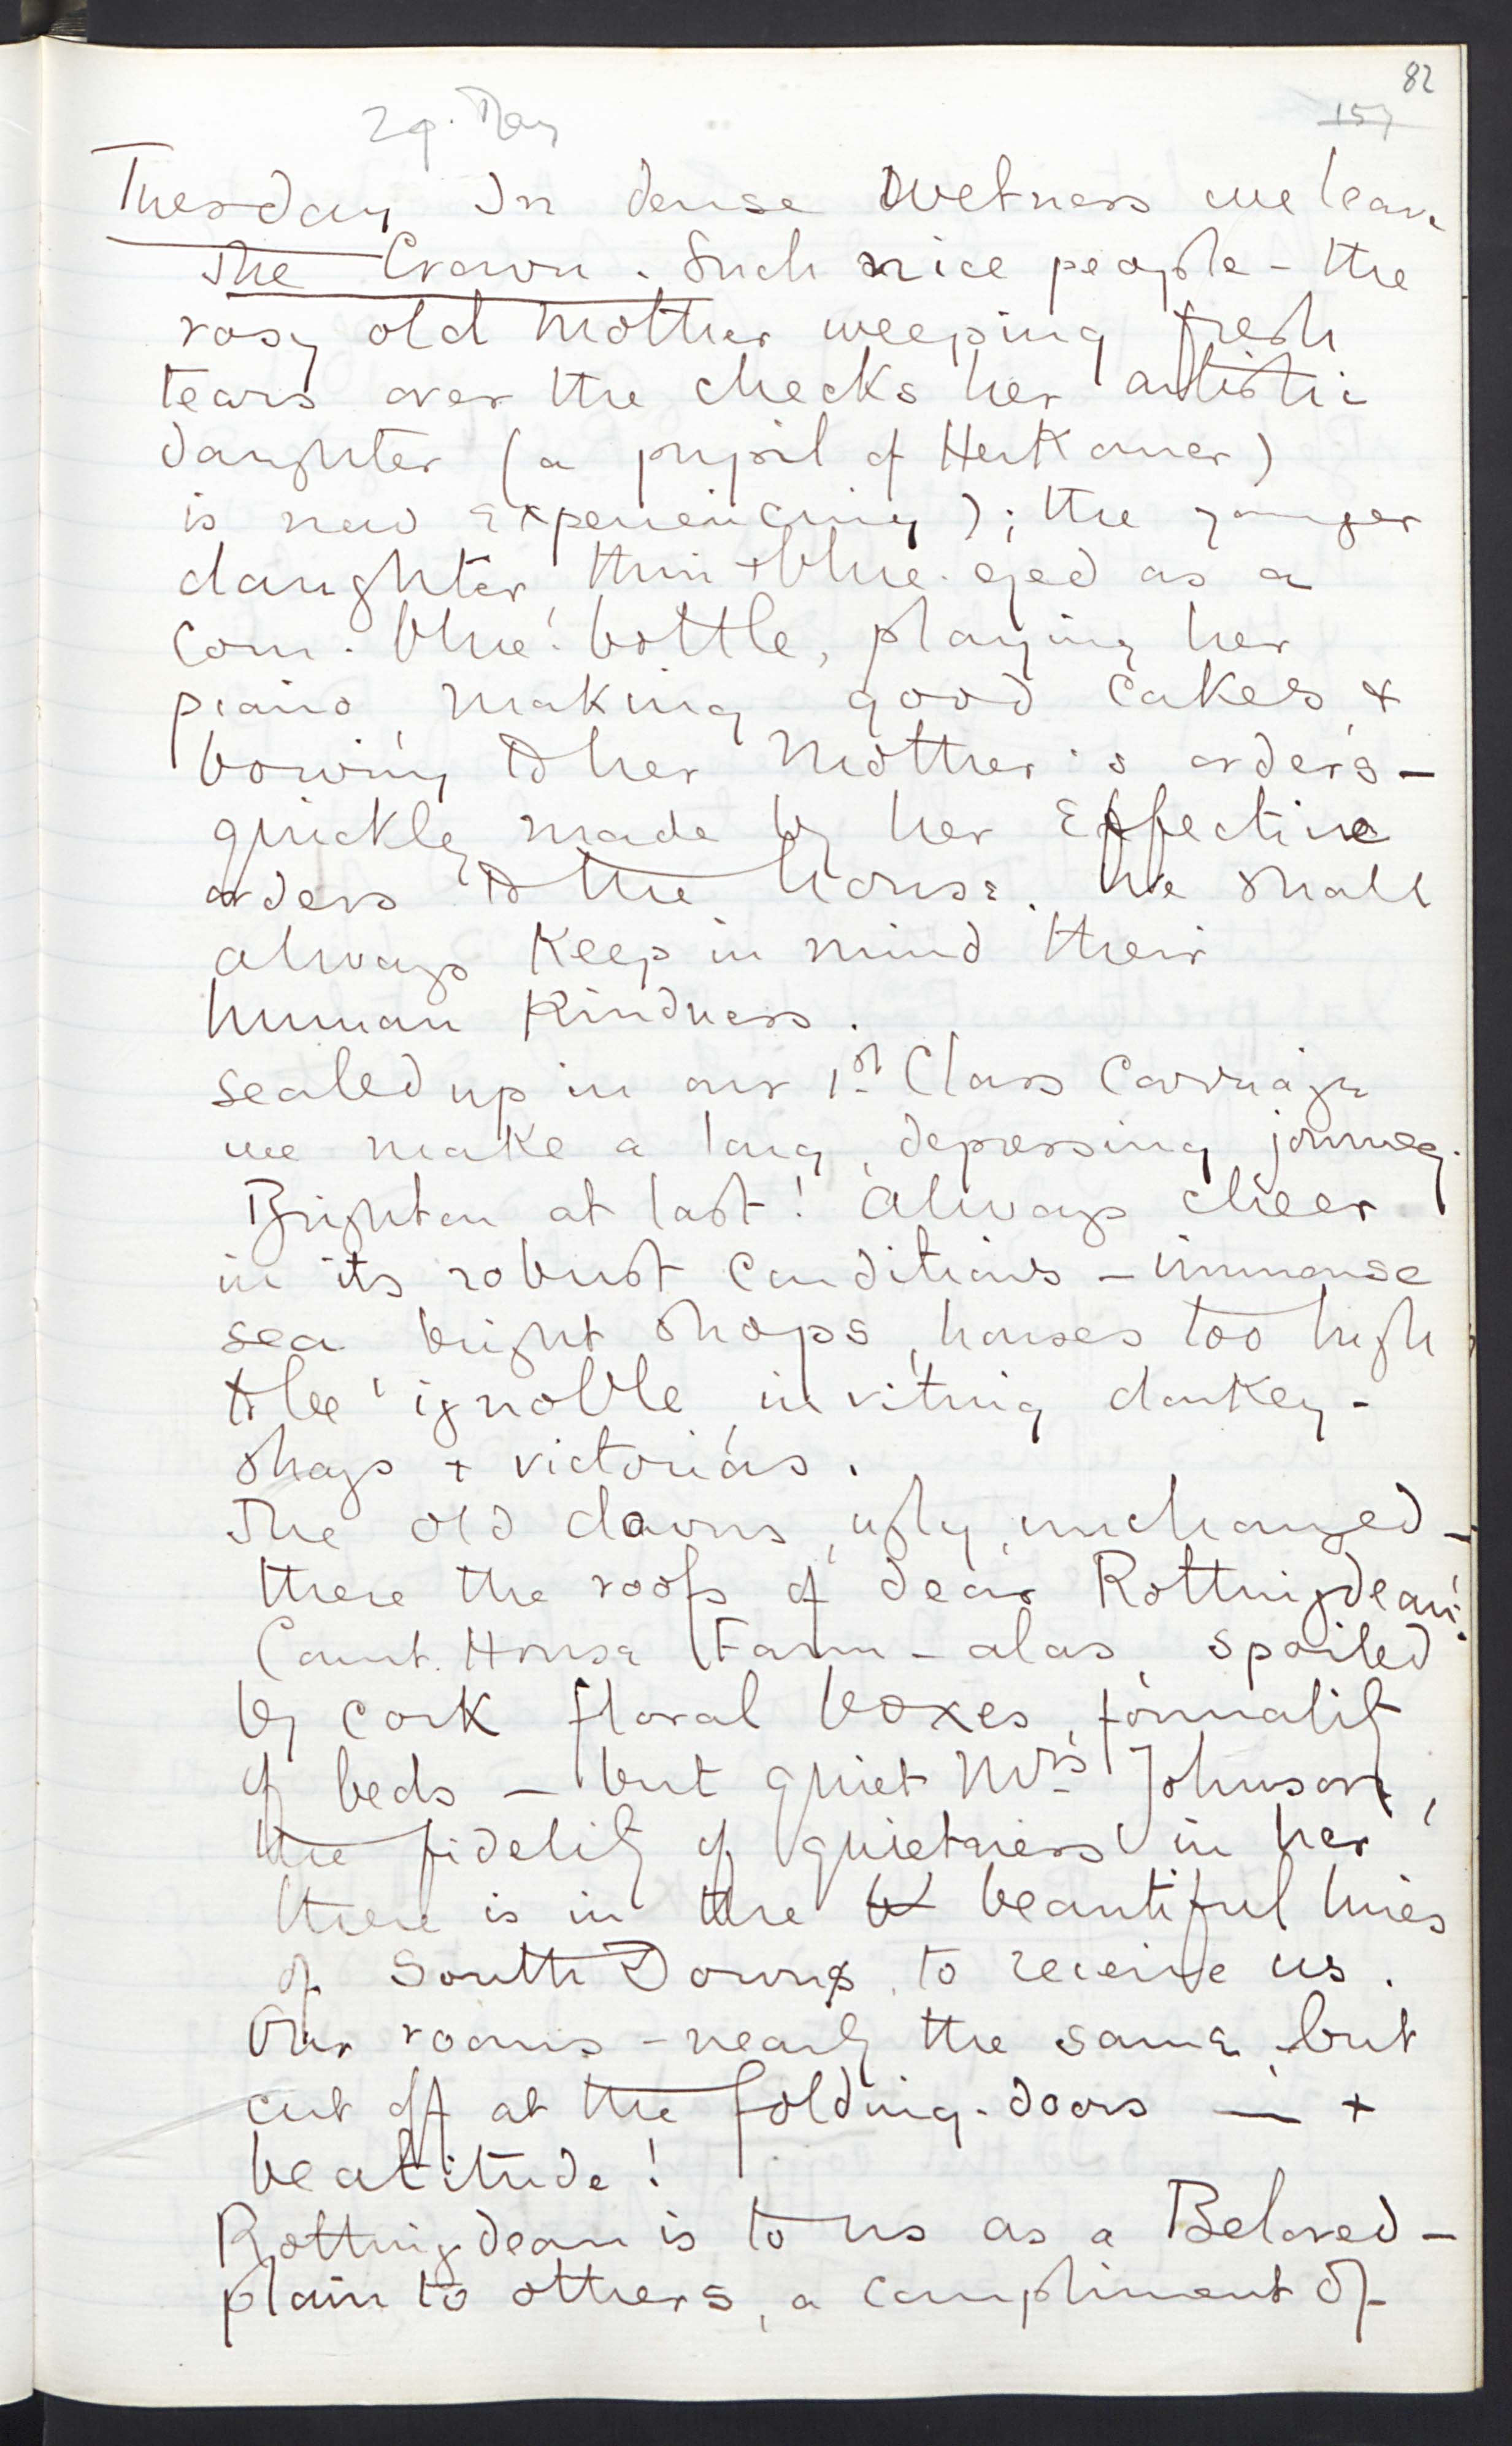 82
157
29. May
Tuesday In dense wetness we leave
The Crown. Such nice people - the
rosy old Mother weeping fresh
tears over the checks her artistic
daughter (a pupil of Herkomer)
is now experiencing); the younger
daughter, thin + blue-eyed as a
corn-blue-bottle, playing her
piano, making good cakes, +
bowing to her Mother's orders -
quickly made by her effective
orders to the house. We shall
always keep in mind their
human kindness.
Sealed up in our 1st Class Carriage
we make a long, depressing journey.
Brighton at last! Always cheer
in its robust conditions - immense
sea bright shops, houses too high
to be ignoble, inviting donkey-
shays + victorias.
The old downs, ugly, unchanged -
there the roofs of dear Rottingdean!
Court House Farm - alas, spoiled
by cork floral boxes, formality
of beds - but quiet Mrs Johnson,
the fidelity of quietness in her
there is in the be beautiful lines
of South Downs, to receive us.
Our rooms - nearly the same, but
cut off at the folding-doors - +
beatitude!
Rottingdean is to us as a Beloved -
plain to others, a compliment of